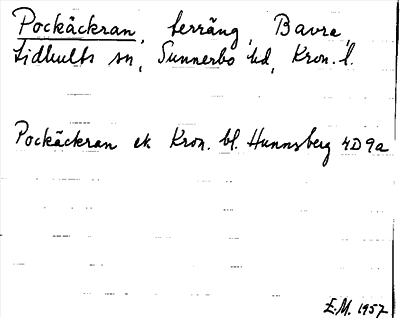 Pockäckran, terräng, Bavra,
Lidhults sn, Sunnerbo hd, Kron. l.
Pockäckran ek Kron. bl. Hunnsberg 4D9a
E.M. 1957